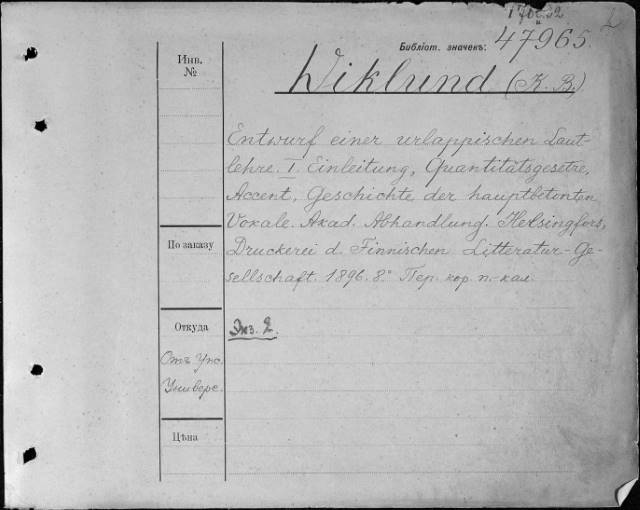 Библіот. значекъ: 47965.
Инв.
№
Wiklund (K. B.)
Entwurf einer urlappischen Laut-
lehre. I. Einleitung, Quantitätsgesetze,
Accent, Geschichte der hauptbetonten
Vokale. Akad. Abhandlung. Helsingfors,
По заказу
Druckerei d. Finnischen Litteratur-Ge-
sellschaft. 1896. 8° Пер. кор. п.-кал.
Откуда
Экз. 2.
Отъ Упс.
Универс.
Цѣна